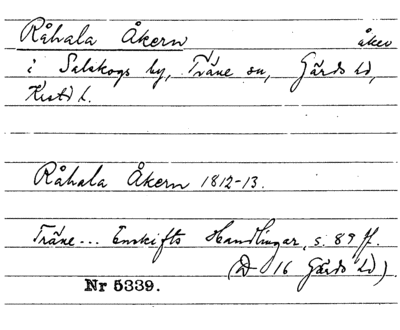 Råhala Åkern åker
i Salskogs by, Träne sn, Gärds hd,
Krstd l.
Råhala Åkern 1812-13.
Träne... Enskifts Handlingar, s. 89 ff.
(D 16 Gärds hd)
Nr 5339.